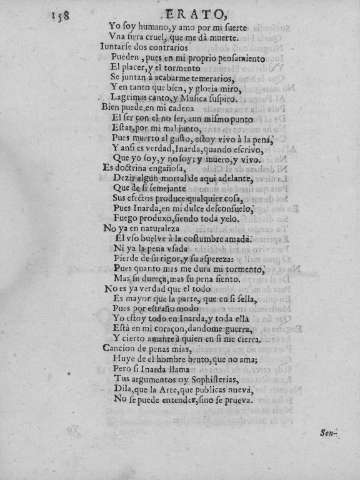 158 ERATO,
Yo soy humano, y amo por mi suerte
Vna fiera cruel, que me dà muerte.
Iuntarse dos contrarios
Pueden, pues en mi proprio pensamiento
El placer, y el tormento
Se juntan à acabarme temerarios,
Y en tanto que bien, y gloria miro,
Lagrimas canto, y Musica suspiro.
Bien puede, en mi cadena
El ser con el no ser, aun mismo punto
Estar, por mi mal junto,
Pues muerto al gusto, estoy vivo à la pena,
Y ansi es verdad, Inarda, quando escrivo,
Que yo soy, y no soy; y muero, y vivo.
Es doctrina engañosa,
Dezir algun mortal de aqui adelante,
Que de si semejante
Sus efectos produce qualquier cosa,
Pues Inarda, en mi dulce desconsuelo,
Fuego produxo, siendo toda yelo.
No ya en naturaleza
El vso buelve à la costumbre amada.
Ni ya la pena vsada
Pierde de su rigor, y su aspereza:
Pues quanto mas me dura mi tormento,
Mas su dureça, mas su pena siento.
No es ya verdad que el todo
Es mayor que la parte, que en si sella,
Pues por estraño modo
Yo estoy todo en Inarda, y toda ella
Està en mi coraçon, dandome guerra,
Y cierto amante à quien en si me cierra.
Cancion de penas mias,
Huye de el hombre bruto, que no ama;
Pero si Inarda llama
Tus argumentos oy Sophisterias,
Dila, que la Arte, que publicas nueva,
No se puede entender, sino se prueva.
Son-